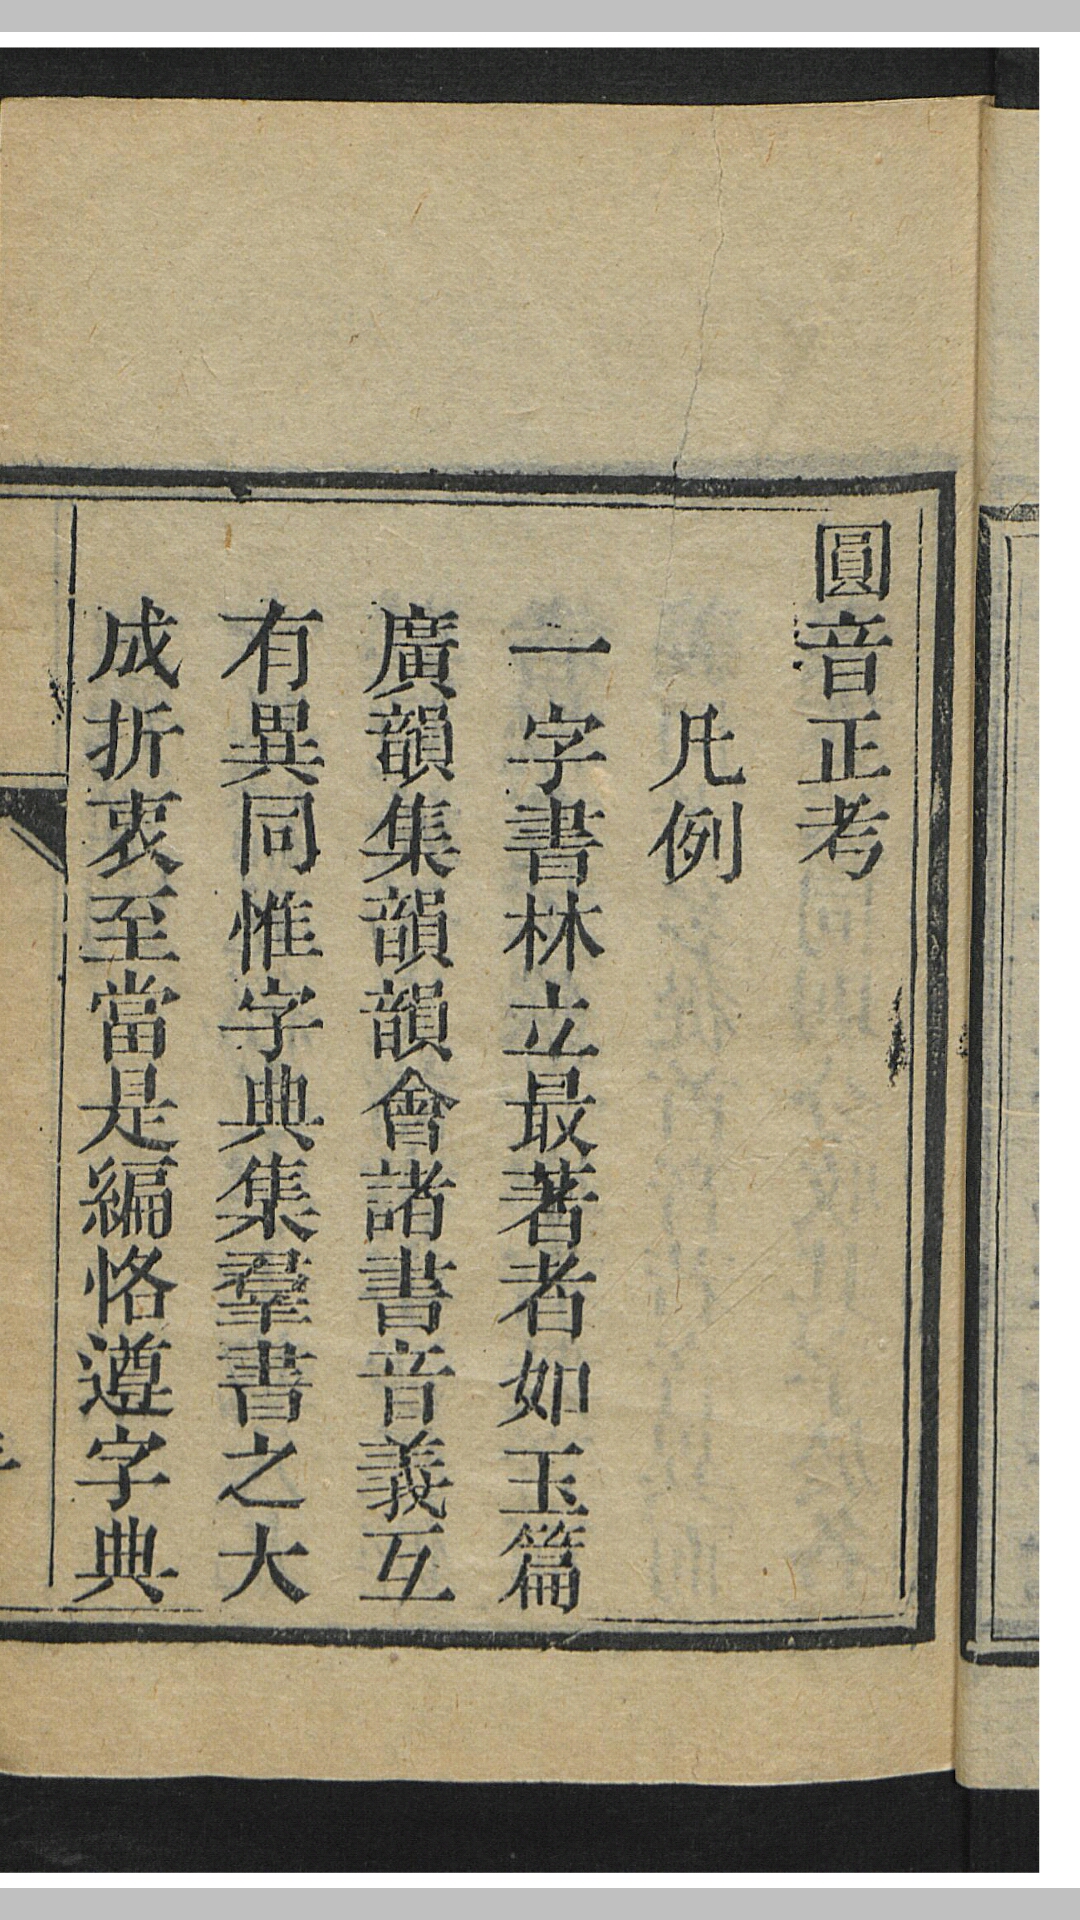 圓音正考
凡例
一字書林立最著者如玉篇
廣韻集韻韻會諸書音義互
有異同惟字典集羣書之大
成折衷至當是編恪遵字典